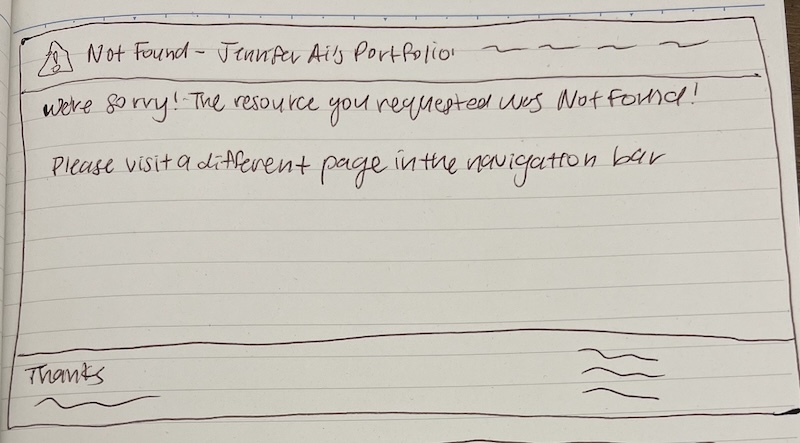 Not Found - Jennifer Ai's Portfolio
We're sorry! The resource you requested was Not Found!
Please visit a different page in the navigation bar
Thanks